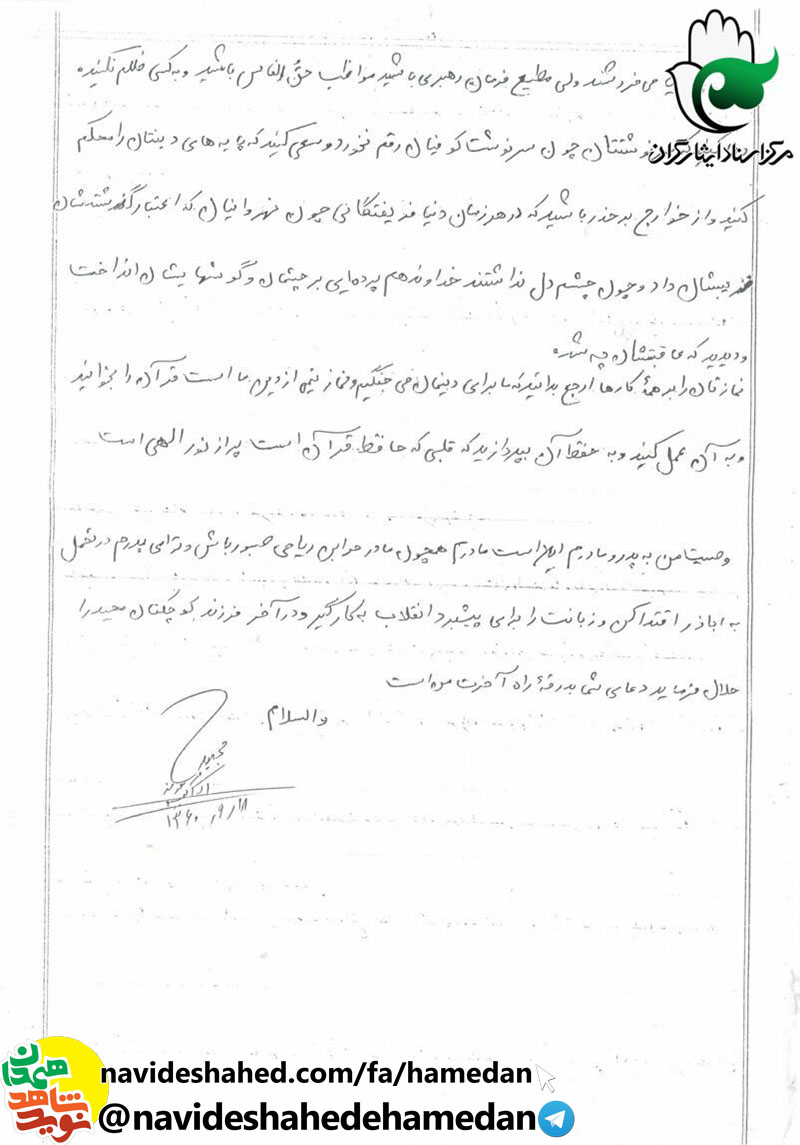 می‌فروشند ولی مطیع فرمان رهبری باشید مواظب حق الناس باشید و به کسی ظلم نکنید
مرکز اسناد ایثارگران
سرنوشتتان چون سرنوشت کوفیان رقم نخورد و سعی کنید که پایه های دینتان را محکم
کنید و از خوارج برحذر باشید که در هر زمان دنیا فریفتگانی چون نهروانیان که اعتبار گذشته‌شان
فریبشان داد و چون چشم دل نداشتند خداوند هم پرده‌ایی بر چشمان و گوشهایشان انداخت
و دیدید که عاقبتشان چه شد
نمازتان را بر همهٔ کارها ارجح بدانید که ما برای دینمان می جنگیم و نماز نیمی از دین ما است قرآن را بخوانید
و به آن عمل کنید و به حفظ آن بپردازید که قلبی که حافظ قرآن است پر از نور الهی است
وصیت من به پدر و مادرم این است مادرم همچون مادر صبور باش و تو ای پدرم در تحمل
به اباذر اقتدا کن و زبانت را برای پیشبرد انقلاب به کار گیر و در آخر فرزند کوچکتان مجید را
حلال فرماید دعای شما بدرقهٔ راه آخرت من است
والسلام
مجید
۱۳۶۰
نوید شاهد همدان
navideshahed.com/fa/hamedan
@navideshahedehamedan